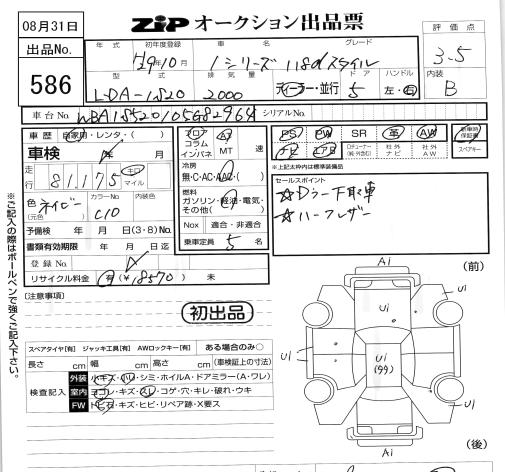 08月31日
ZIPオークション出品票
出品No.
586
年式 初年度登録 車名 グレード
H29年10月 1シリーズ 118dスタイル
型式 排気量 ドア ハンドル
LDA-1S20 2000 ディーラー・並行 5 左・右
評価点
3.5
内装
B
車台No. シリアルNo.
車歴 自家用・レンタ・( )
車検 年 月
走行 81,175 キロ マイル
色(元色) ネイビー カラーNo C10 内装色
予備検 年 月 日(3・8)No.
書類有効期限 年 月 日迄
登録No.
リサイクル料金 有(¥18570) 未
フロア AT
コラム
インパネ MT 速
冷房
無・C・AC・AAC・( )
燃料
ガソリン・軽油・電気・
その他( )
Nox 適合・非適合
乗車定員 5 名
PS PW SR 革 AW 新車時保証書
ナビ エアB 社外ナビ 社外AW スペアキー
※上記太枠内は標準装備品
セールスポイント
☆Dラー下取車
☆ハーフレザー
※ご記入の際はボールペンで強くご記入下さい。
[注意事項]
初出品
スペアタイヤ[有] ジャッキ工具[有] AWロックキー[有] ある場合のみ○
長さ cm 幅 cm 高さ cm (車検証上の寸法)
検査記入
外装 小キズ・凹・シミ・ホイルA・ドアミラー(A・ワレ)
室内 ヨゴレ・キズ・スレ・コゲ・穴・キレ・破れ・ウキ
FW トビ石・キズ・ヒビ・リペア跡・X要ス
Ai
(前)
Ui
Ui
Ui
(99)
Ui
Ui
Ai
(後)